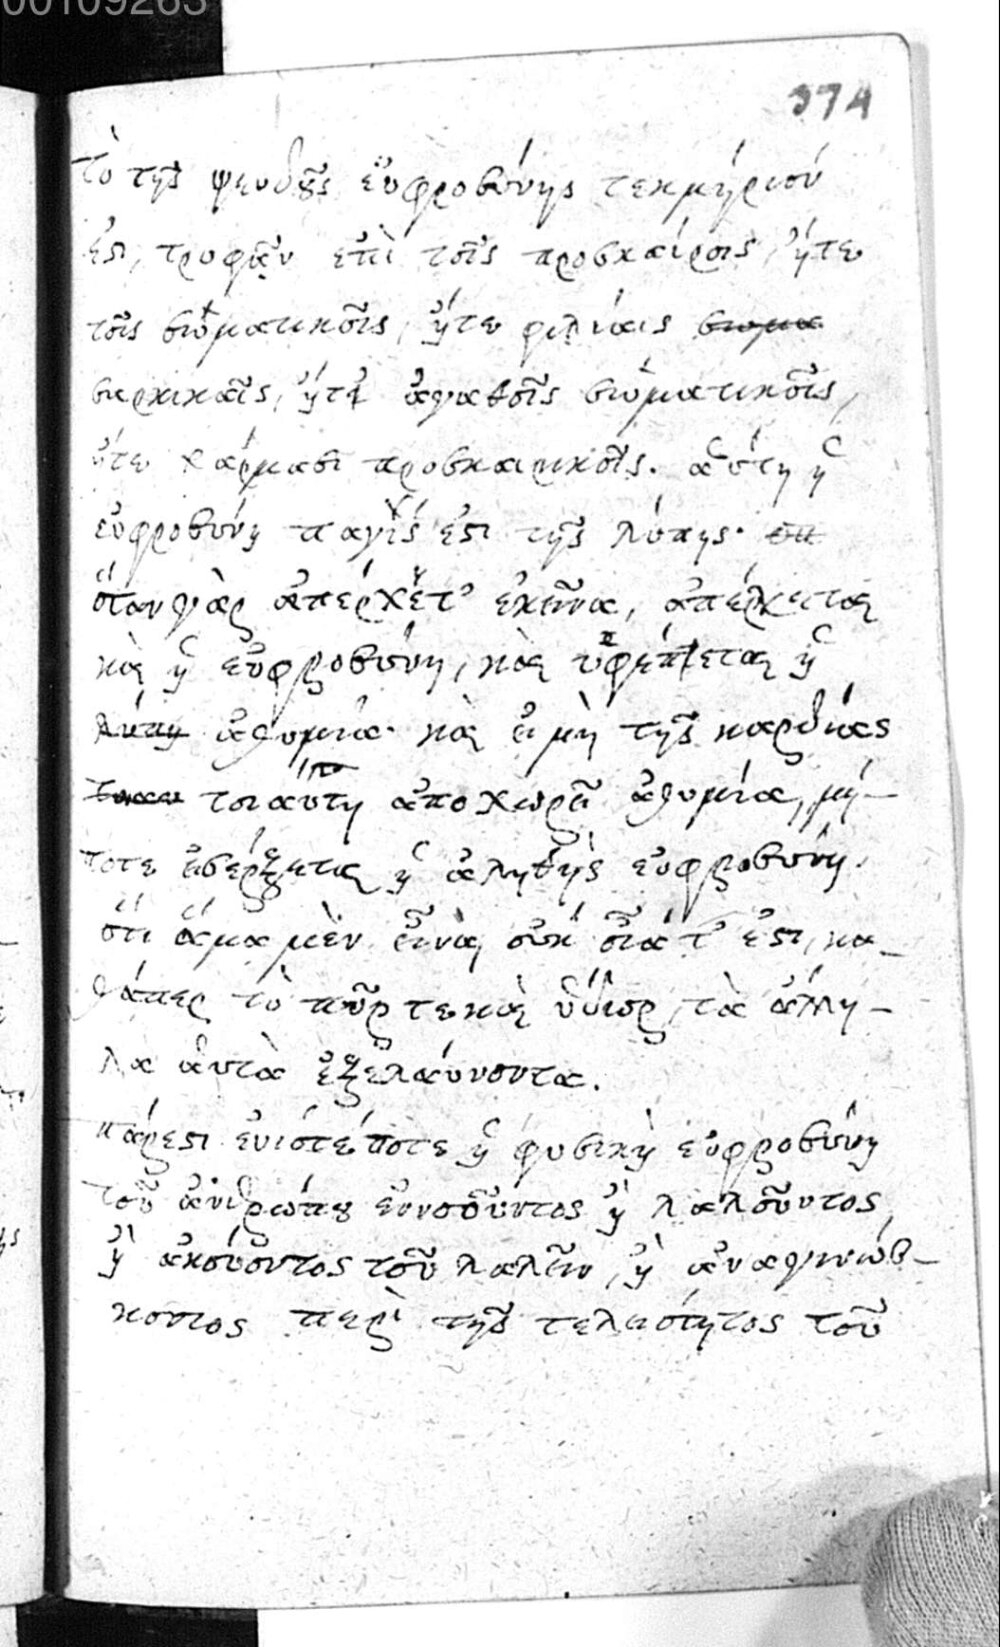 00109263
374
τὸ τῆς ψευδοῦς εὐφροσύνης τεκμήριον
ἐστι, τρυφᾶν ἐπὶ τοῖς προσκαίροις, ἤτε
τοῖς σωματικοῖς, ἤτε φιλίαις σωμα
σαρκικαῖς, ἤτε ἀγαθοῖς σωματικοῖς,
ἤτε χάρμασι προσκαιρικοῖς. αὕτη ἡ
εὐφροσύνη παγίς ἐστι τῆς λύπης.
ὅταν γὰρ ἀπέρχετ' ἐκεῖνα, ἀπέρχεται
καὶ ἡ εὐφροσύνη, καὶ ἡ
λύπη ἀθυμία. καὶ εἰ μὴ τῆς καρδίας
τοιαύτη ἀποχωρεῖ ἀθυμία, μή-
ποτε εἰσέρχεται ἡ ἀληθὴς εὐφροσύνη.
ὅτι ἅμα μὲν εἶναι οὐκ οἷά τ' ἐστι, κα-
θάπερ τὸ πῦρ τε καὶ ὕδωρ, τὰ ἄλλη-
λα αὐτὰ ἐξελαύνοντα.
πάρεστι ἐνίοτέ ποτε ἡ φυσικὴ εὐφροσύνη
τοῦ ἀνθρώπου ἐννοοῦντος ἢ λαλοῦντος,
ἢ ἀκούοντος τοῦ λαλεῖν, ἢ ἀναγινώσ-
κοντος περὶ τῆς τελειότητος τοῦ